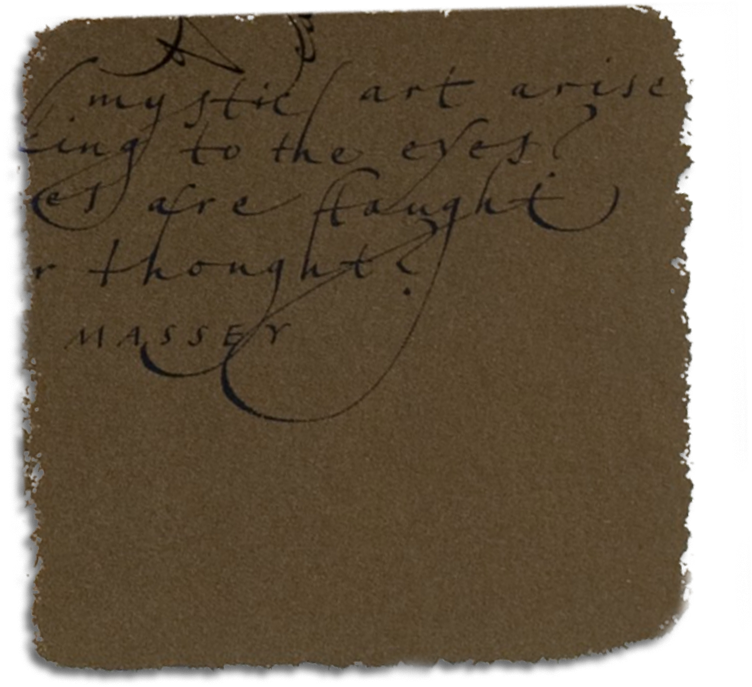 mystic art arise
king to the eyes?
es are taught
r thought?
MASSEY